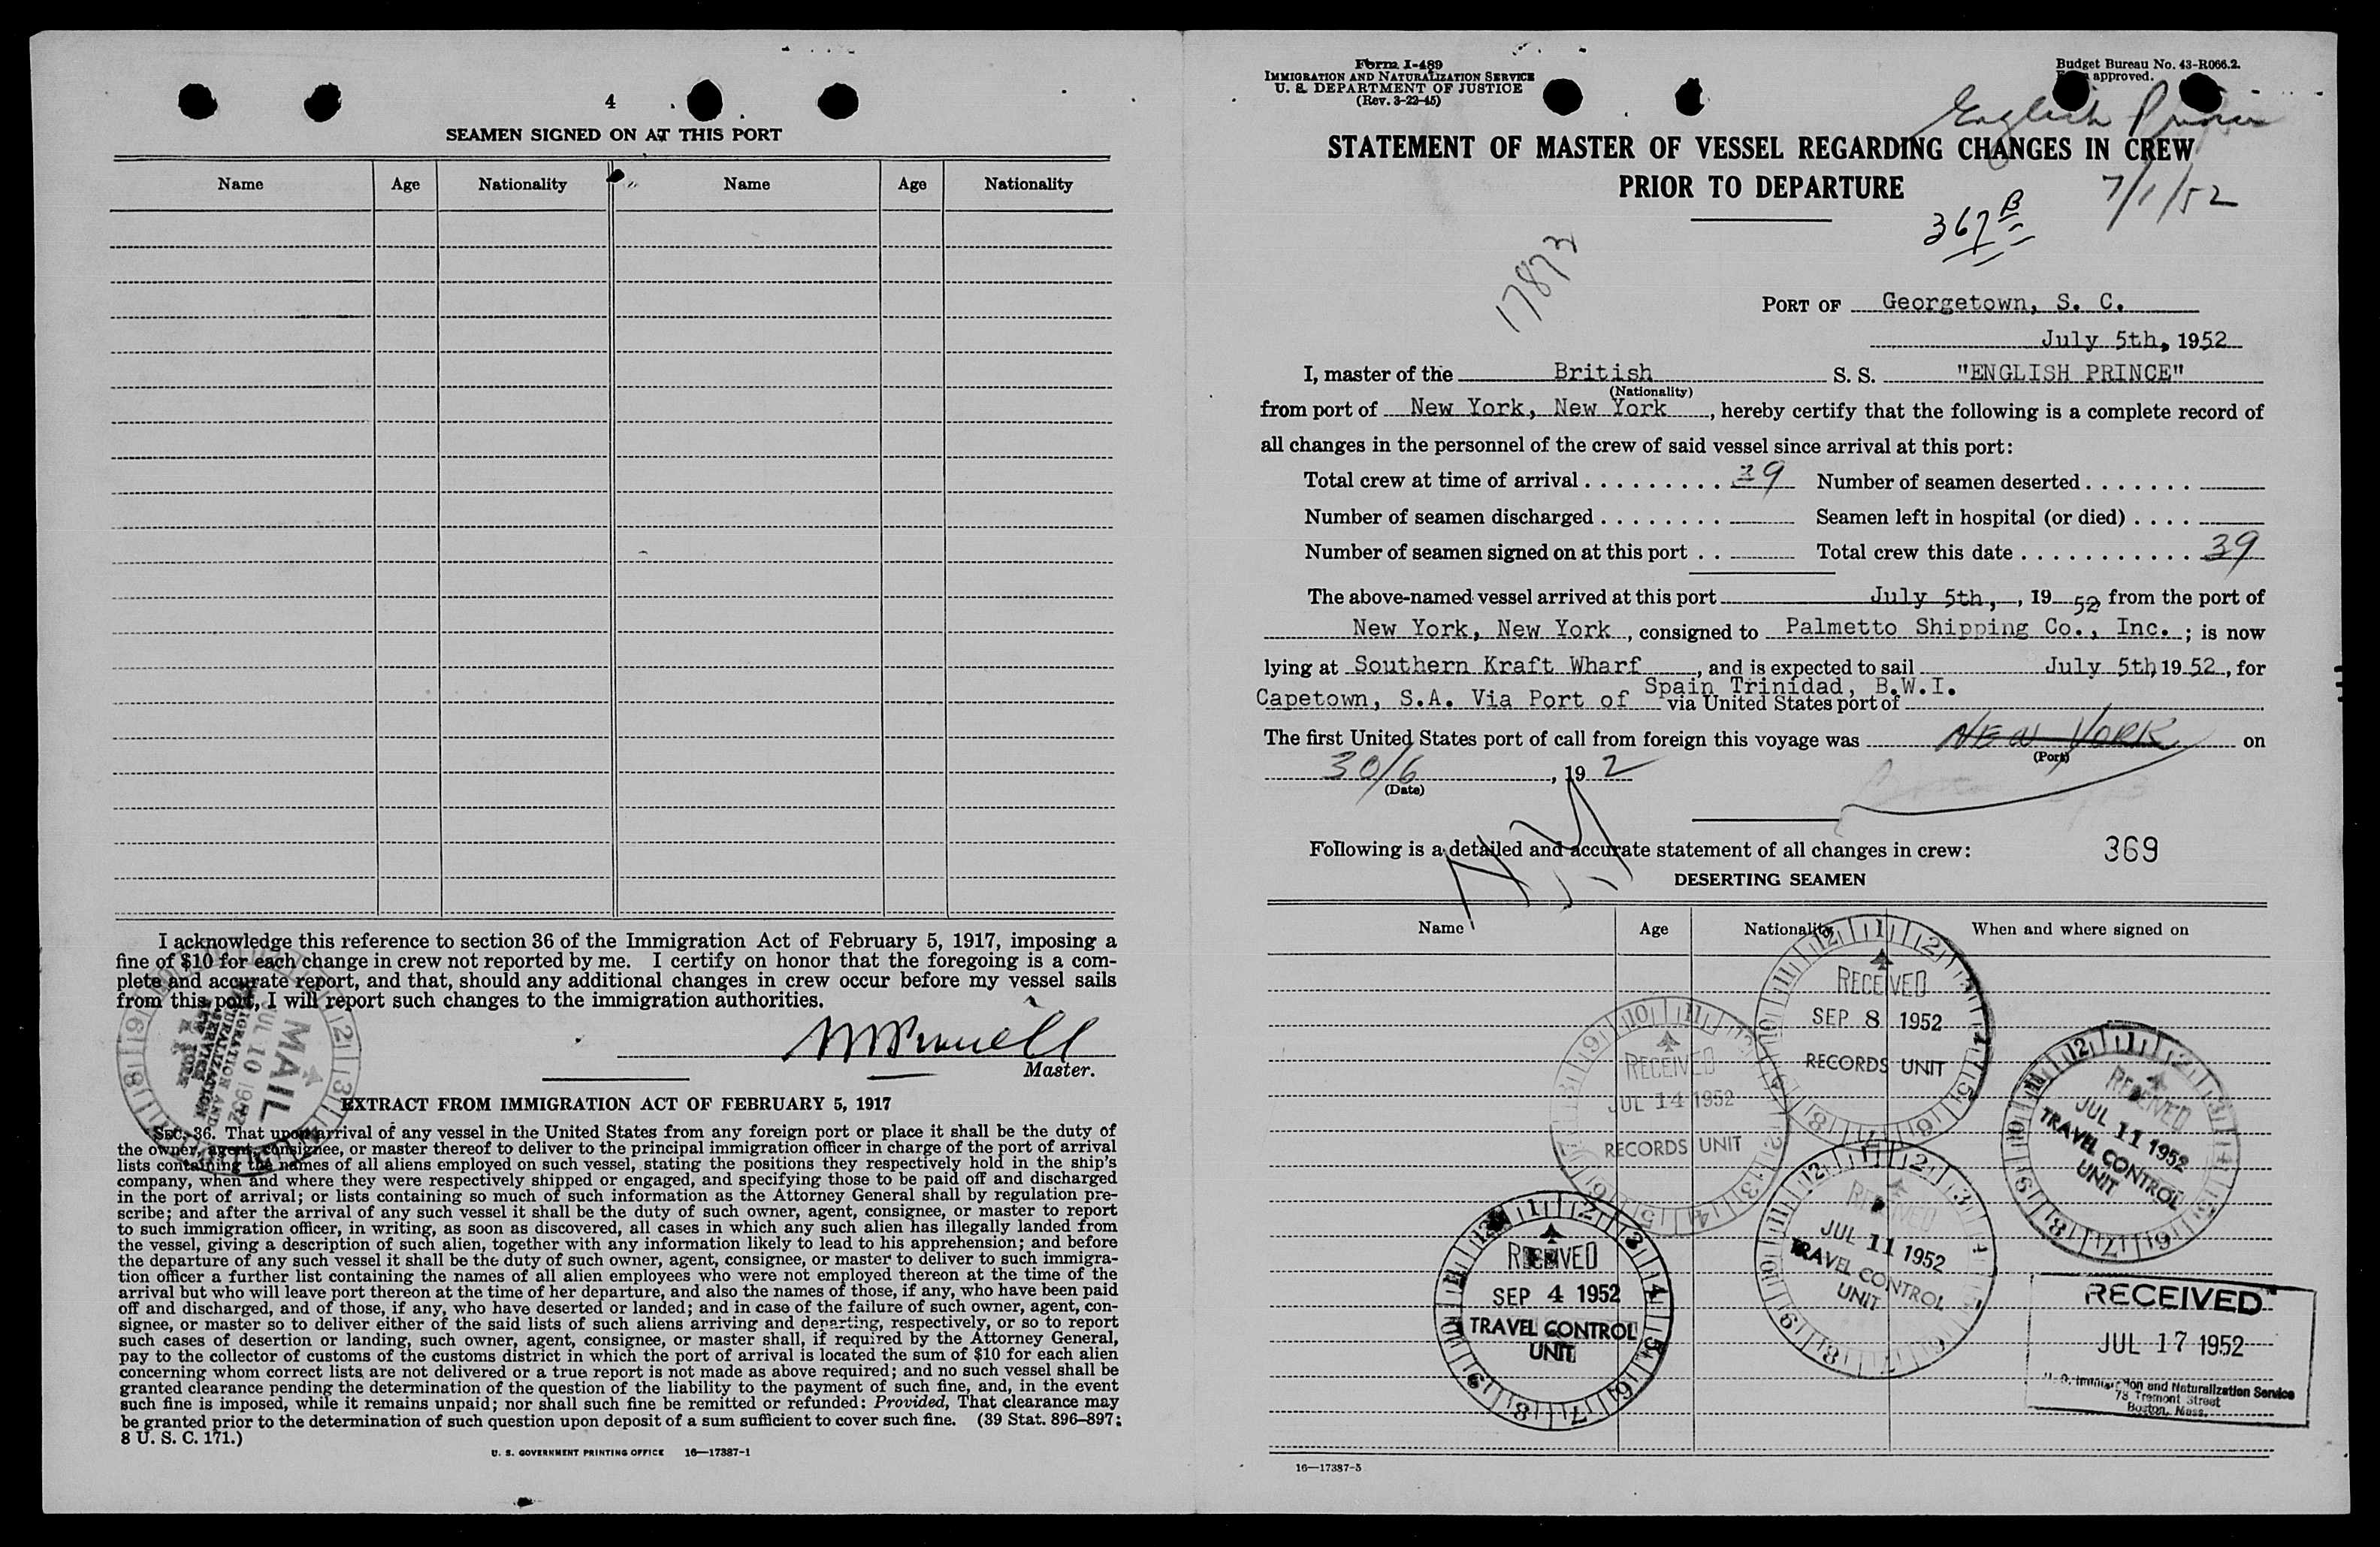 4
SEAMEN SIGNED ON AT THIS PORT
Name Age Nationality Name Age Nationality
I acknowledge this reference to section 36 of the Immigration Act of February 5, 1917, imposing a
fine of $10 for each change in crew not reported by me. I certify on honor that the foregoing is a com-
plete and accurate report, and that, should any additional changes in crew occur before my vessel sails
from this port, I will report such changes to the immigration authorities.
Master.
MAIL
JUL 10 1952
IMMIGRATION AND
NATURALIZATION
SERVICE
EXTRACT FROM IMMIGRATION ACT OF FEBRUARY 5, 1917
SEC. 36. That upon arrival of any vessel in the United States from any foreign port or place it shall be the duty of
the owner, agent, consignee, or master thereof to deliver to the principal immigration officer in charge of the port of arrival
lists containing the names of all aliens employed on such vessel, stating the positions they respectively hold in the ship's
company, when and where they were respectively shipped or engaged, and specifying those to be paid off and discharged
in the port of arrival; or lists containing so much of such information as the Attorney General shall by regulation pre-
scribe; and after the arrival of any such vessel it shall be the duty of such owner, agent, consignee, or master to report
to such immigration officer, in writing, as soon as discovered, all cases in which any such alien has illegally landed from
the vessel, giving a description of such alien, together with any information likely to lead to his apprehension; and before
the departure of any such vessel it shall be the duty of such owner, agent, consignee, or master to deliver to such immigra-
tion officer a further list containing the names of all alien employees who were not employed thereon at the time of the
arrival but who will leave port thereon at the time of her departure, and also the names of those, if any, who have been paid
off and discharged, and of those, if any, who have deserted or landed; and in case of the failure of such owner, agent, con-
signee, or master so to deliver either of the said lists of such aliens arriving and departing, respectively, or so to report
such cases of desertion or landing, such owner, agent, consignee, or master shall, if required by the Attorney General,
pay to the collector of customs of the customs district in which the port of arrival is located the sum of $10 for each alien
concerning whom correct lists are not delivered or a true report is not made as above required; and no such vessel shall be
granted clearance pending the determination of the question of the liability to the payment of such fine, and, in the event
such fine is imposed, while it remains unpaid; nor shall such fine be remitted or refunded: Provided, That clearance may
be granted prior to the determination of such question upon deposit of a sum sufficient to cover such fine. (39 Stat. 896–897;
8 U. S. C. 171.)
U. S. GOVERNMENT PRINTING OFFICE 16—17387-1
Form I-489
IMMIGRATION AND NATURALIZATION SERVICE
U. S. DEPARTMENT OF JUSTICE
(Rev. 3-22-45)
Budget Bureau No. 43-R066.2.
approved.
English Prince
STATEMENT OF MASTER OF VESSEL REGARDING CHANGES IN CREW
PRIOR TO DEPARTURE
7/1/52
367 B
17873
PORT OF Georgetown, S. C.
July 5th, 1952
I, master of the British S. S. "ENGLISH PRINCE"
(Nationality)
from port of New York, New York, hereby certify that the following is a complete record of
all changes in the personnel of the crew of said vessel since arrival at this port:
Total crew at time of arrival . . . . . . . . . . 39 Number of seamen deserted . . . . . . .
Number of seamen discharged . . . . . . . . Seamen left in hospital (or died) . . . .
Number of seamen signed on at this port . . Total crew this date . . . . . . . . . . . 39
The above-named vessel arrived at this port July 5th, , 19 52, from the port of
New York, New York, consigned to Palmetto Shipping Co., Inc. ; is now
lying at Southern Kraft Wharf, and is expected to sail July 5th, 19 52, for
Capetown, S.A. Via Port of Spain Trinidad, B.W.I. via United States port of
The first United States port of call from foreign this voyage was NEW YORK on
(Port)
30/6, 19 2
(Date)
Following is a detailed and accurate statement of all changes in crew: 369
DESERTING SEAMEN
Name Age Nationality When and where signed on
RECEIVED
SEP 8 1952
RECORDS UNIT
RECEIVED
JUL 14 1952
RECORDS UNIT
RECEIVED
JUL 11 1952
TRAVEL CONTROL
UNIT
RECEIVED
JUL 11 1952
TRAVEL CONTROL
UNIT
RECEIVED
SEP 4 1952
TRAVEL CONTROL
UNIT
RECEIVED
JUL 17 1952
U. S. Immigration and Naturalization Service
73 Tremont Street
Boston, Mass.
16—17387-5